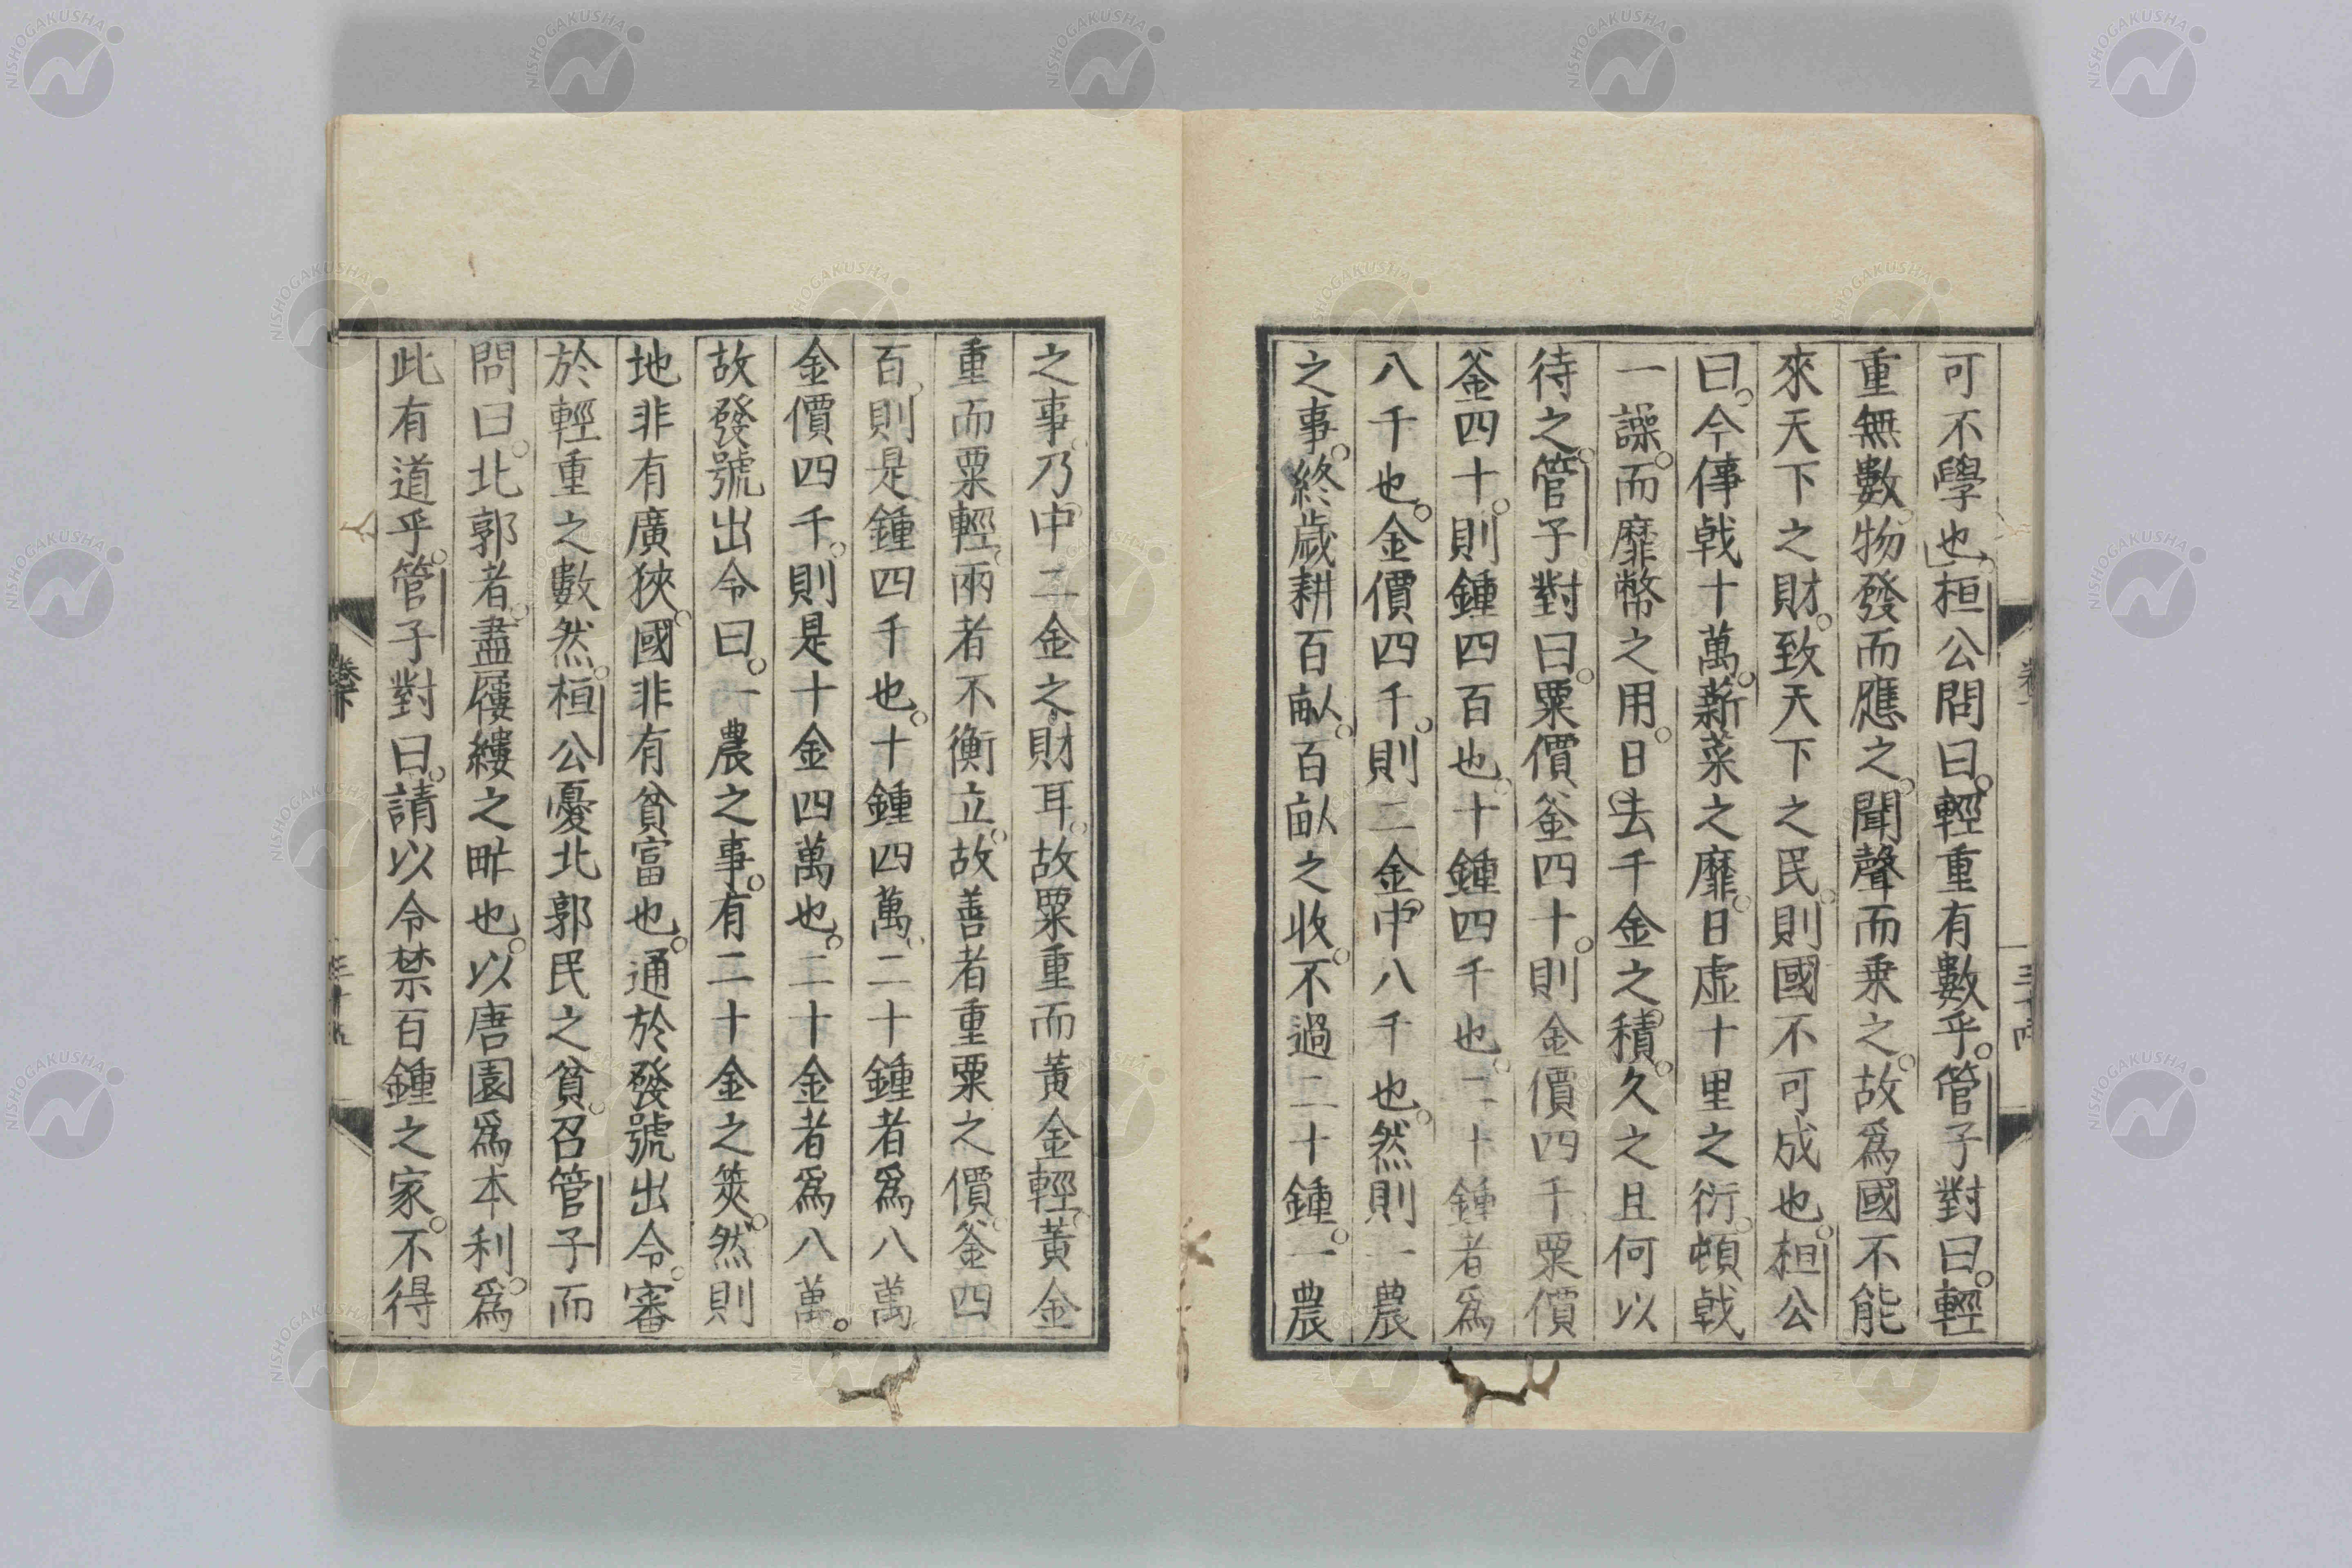 可不學也桓公問曰。輕重有數乎。管子對曰。輕
重無數物發而應之。聞聲而乗之。故爲國不能
來天下之財。致天下之民。則國不可成也。桓公
曰。今倳戟十萬。薪菜之靡。日虛十里之衍。頓戟
一譟。而靡幣之用。日去千金之積。久之且何以
待之。管子對曰。粟價釜四十。則金價四千粟價
釜四十。則鍾四百也。十鍾四千也。二十鍾者爲
八千也。金價四千。則二金中八千也。然則一農
之事。終歲耕百畝。百畝之收。不過二十鍾。一農
之事。乃中二金之財耳。故粟重而黃金輕。黃金
重而粟輕。兩者不衡立。故善者重粟之價。釜四
百。則是鍾四千也。十鍾四萬。二十鍾者爲八萬
金價四千。則是十金四萬也。二十金者爲八萬。
故發號出令曰。一農之事。有二十金之筴。然則
地非有廣狹。國非有貧富也。通於發號出令。審
於輕重之數然。桓公憂北郭民之貧。召管子而
問曰。北郭者。盡屨縷之甿也。以唐園爲本利。爲
此有道乎。管子對曰。請以令禁百鍾之家。不得
NISHOGAKUSHA